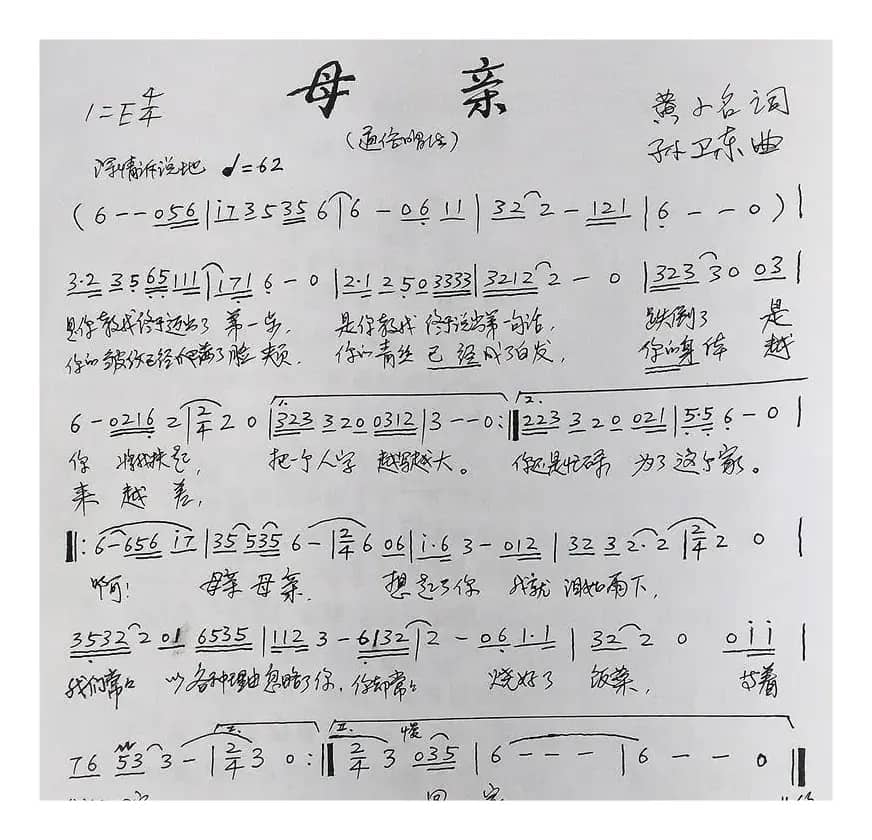 母 亲
1=E 4/4
(通俗唱法)
黄小名词
孙卫东曲
深情诉说地 ♩=62
(6--056|i7 3 5 35 6|6-06 11|32 2-121|6--0)|
3·2 35 65 111|171 6-0|2·1 2 50 3333|3212 2-0|323 30 03|
是你教我终于迈出了第一步, 是你教我终于说出第一句话, 跌倒了 是
你的皱纹已经爬满了脸颊. 你的青丝已经成了白发, 你的身体 越
6-0216 2|2/4 2 0|1. 323 320 0312|3--0:|2. 223 320 021|5·5 6-0|
你 将我扶起, 把一个人字 越写越大。 你还是忙碌 为了这个家。
来 越 差,
|:6-656 i7|35 535 6-|2/4 6 06|i·6 3-012|32 3 2·2|2/4 2 0|
啊! 母亲 母亲, 想起了你 我就 泪如雨下,
3532 2 01 6535|112 3-6132|2-06 1·1|32 2 0 0ii|
我们常常 以各种理由忽略了你, 你却常常 烧好了 饭菜, 等着
76 53 3-|I. 2/4 3 0:|II. 2/4 3 慢 035|6---|6--0|